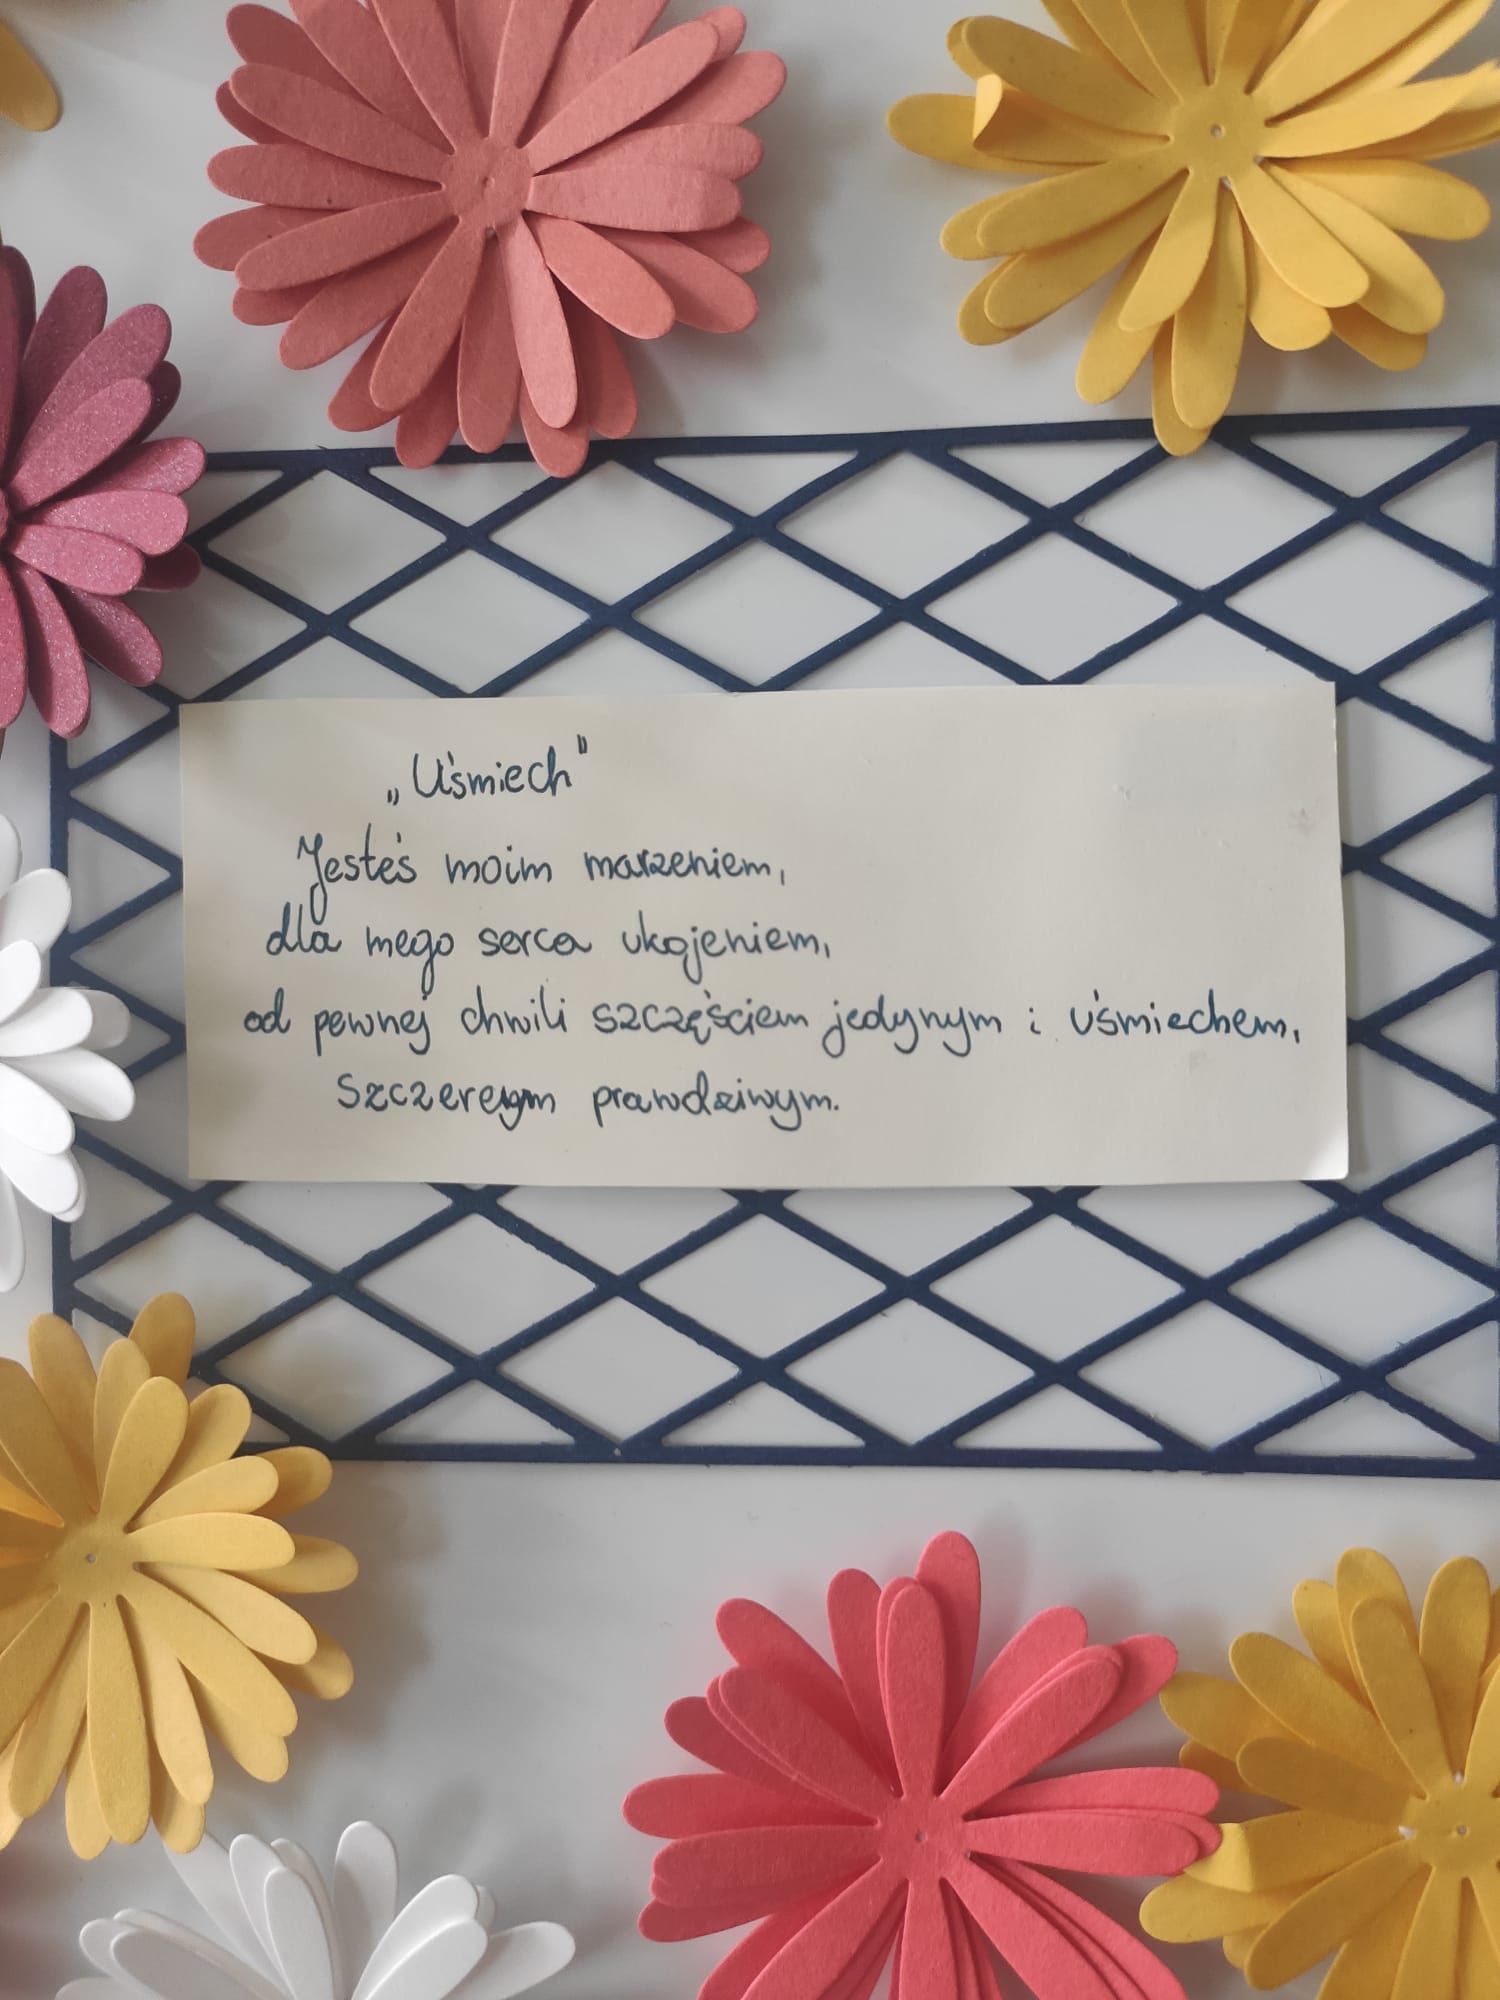 „Uśmiech”
Jesteś moim marzeniem,
dla mego serca ukojeniem,
od pewnej chwili szczęściem jedynym i uśmiechem,
szczerym prawdziwym.